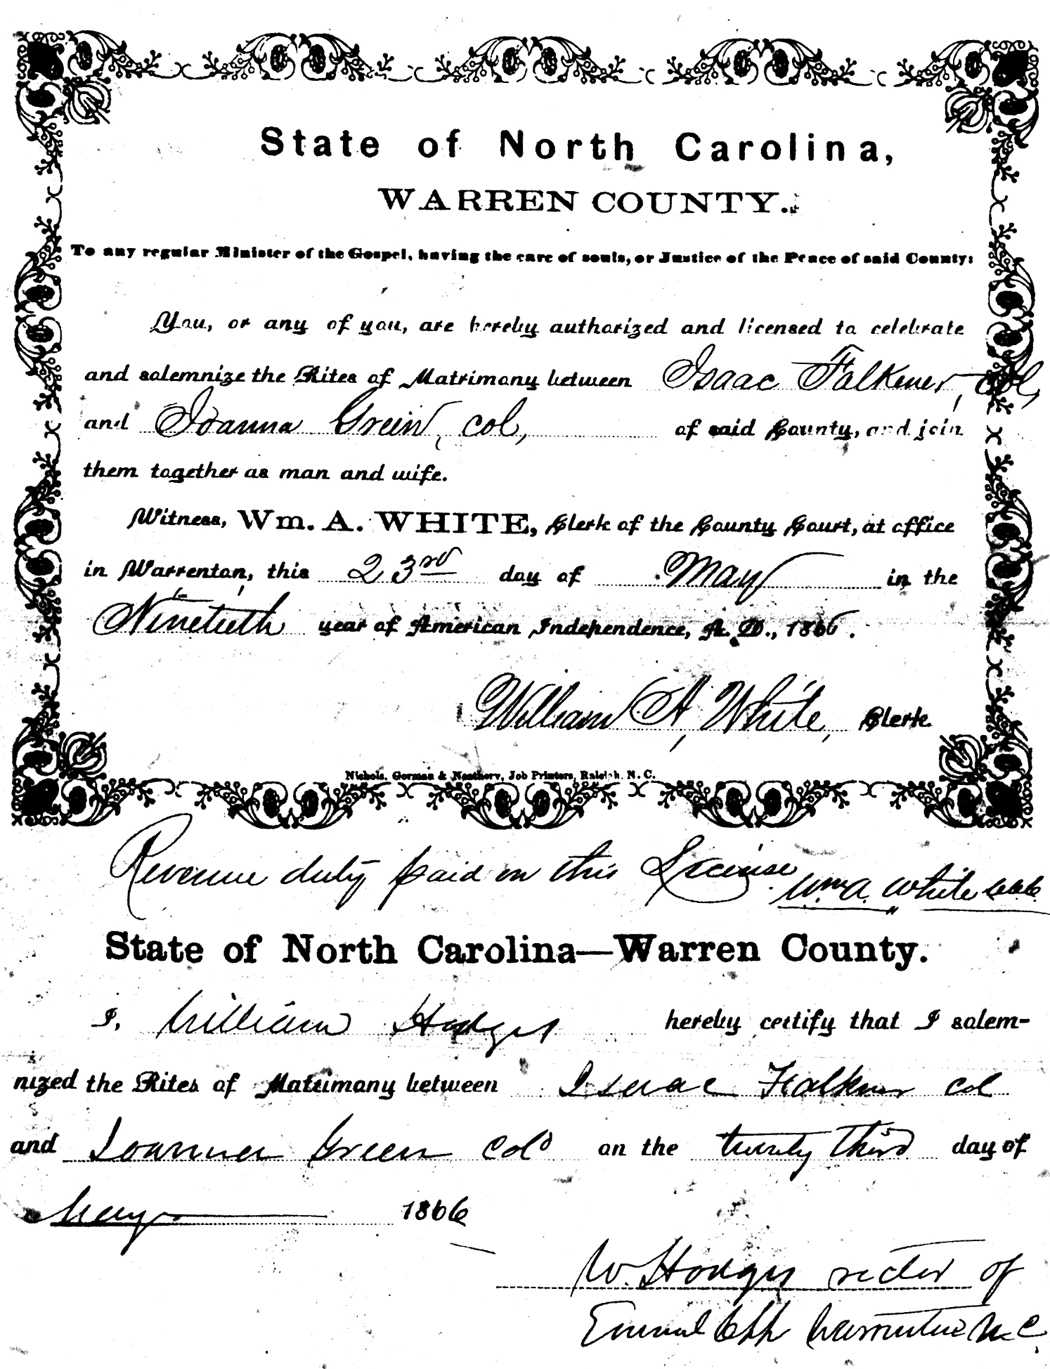 State of North Carolina,
WARREN COUNTY.
To any regular Minister of the Gospel, having the care of souls, or Justice of the Peace of said County:
You, or any of you, are hereby authorized and licensed to celebrate
and solemnize the Rites of Matrimony between Isaac Falkener, col,
and Joanna Green, col, of said County, and join
them together as man and wife.
Witness, Wm. A. WHITE, Clerk of the County Court, at office
in Warrenton, this 23rd day of May in the
Ninetieth year of American Independence, A. D., 1866.
William A, White, Clerk
Nichols, Gorman & Neathery, Job Printers, Raleigh, N. C.
Revenue duty paid on this License Wm A. White
State of North Carolina—Warren County.
I, William Hodges hereby certify that I solem-
nized the Rites of Matrimony between Isaac Falkner col
and Joanna Green col on the twenty third day of
May 1866
W. Hodges rector of
Emmanuel Warrenton N C